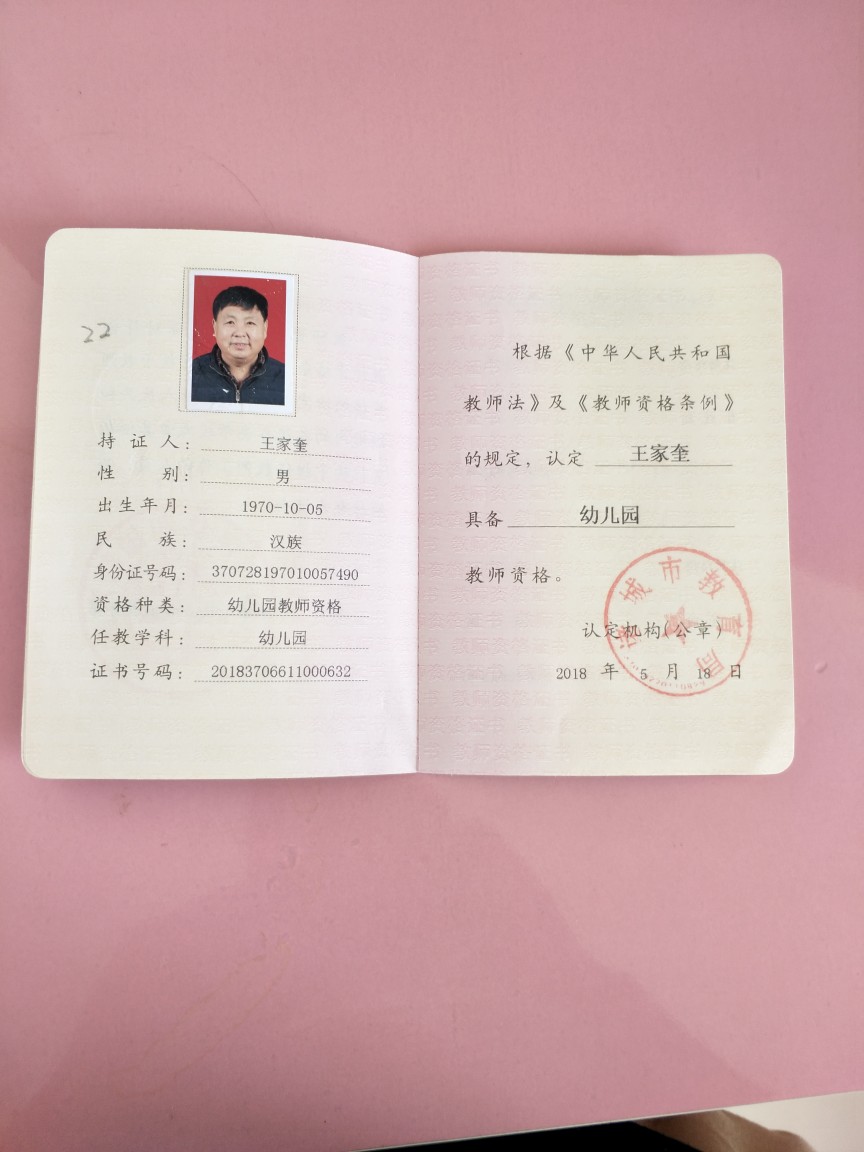 22
持证人：王家奎
性别：男
出生年月：1970-10-05
民族：汉族
身份证号码：370728197010057490
资格种类：幼儿园教师资格
任教学科：幼儿园
证书号码：20183706611000632
根据《中华人民共和国
教师法》及《教师资格条例》
的规定，认定 王家奎
具备 幼儿园
教师资格。
城市教育局
认定机构(公章)
2018 年 5 月 18 日